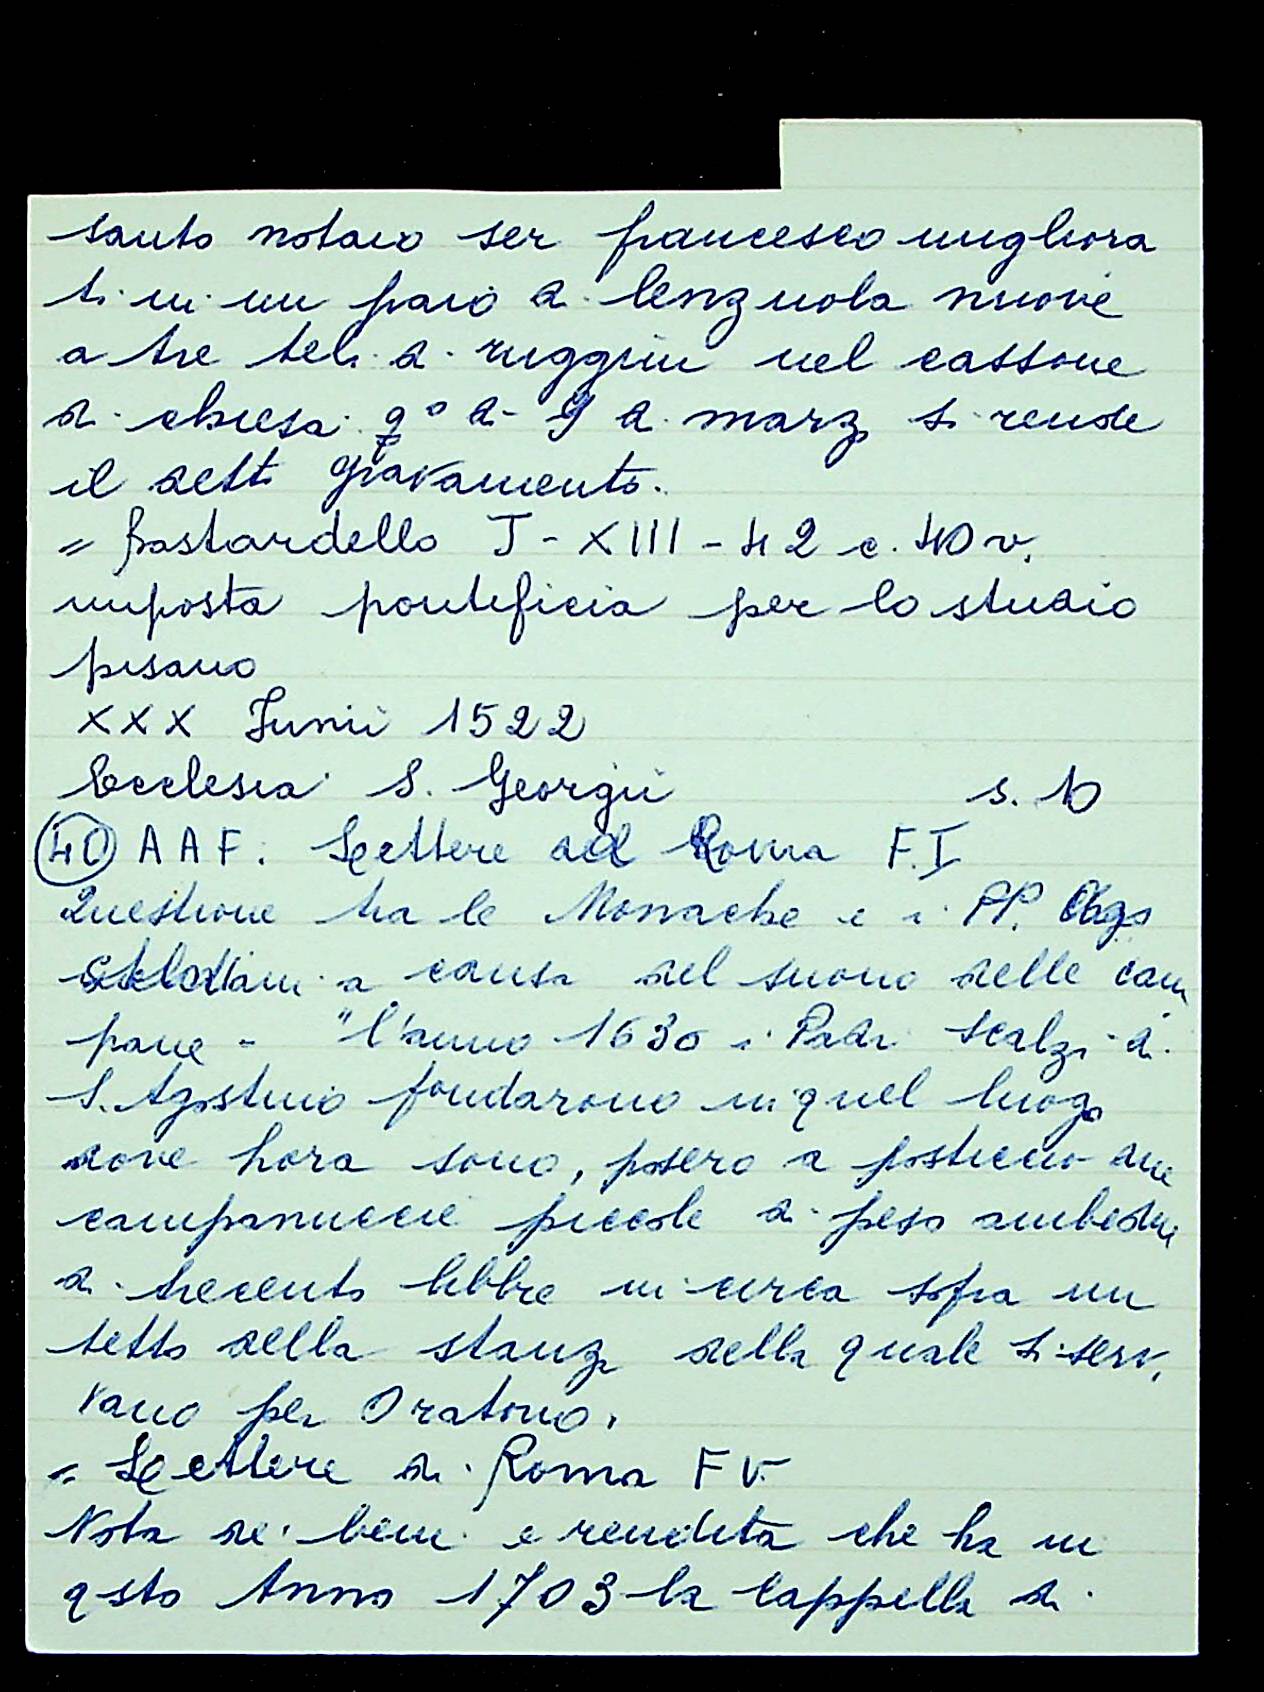 santo notaio ser francesco migliora
ti in un paio di lenzuola nuove
a tre teli di ruggini nel cassone
di chiesa qº di 9 di marzo si rende
il detto gravamento.
= bastardello J - XIII - 42 c. 40 v.
imposta pontificia per lo studio
pisano
XXX Junii 1522
Ecclesia S. Georgii s. 10
40 AAF. Lettere ad Roma F. I
Questione tra le Monache e i PP.
a causa del suono delle cam
pane - "l'anno 1630 i Padri Scalzi di
S. Agostino fondarono in quel luogo
dove hora sono, posero a posticcio due
campanuccie piccole di peso ambedue
di trecento libbre in circa sopra un
tetto della stanza della quale si servi
vano per Oratorio.
= Lettere di Roma F V.
Nota de' beni e rendita che ha in
qsto Anno 1703 la Cappella di